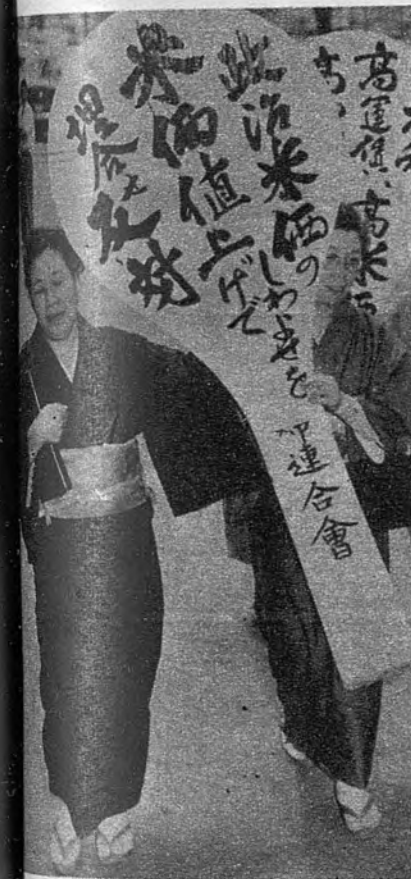 高運賃、高米
政治米価の
しわよせを
米価値上げで
埋合せ反対
連合會